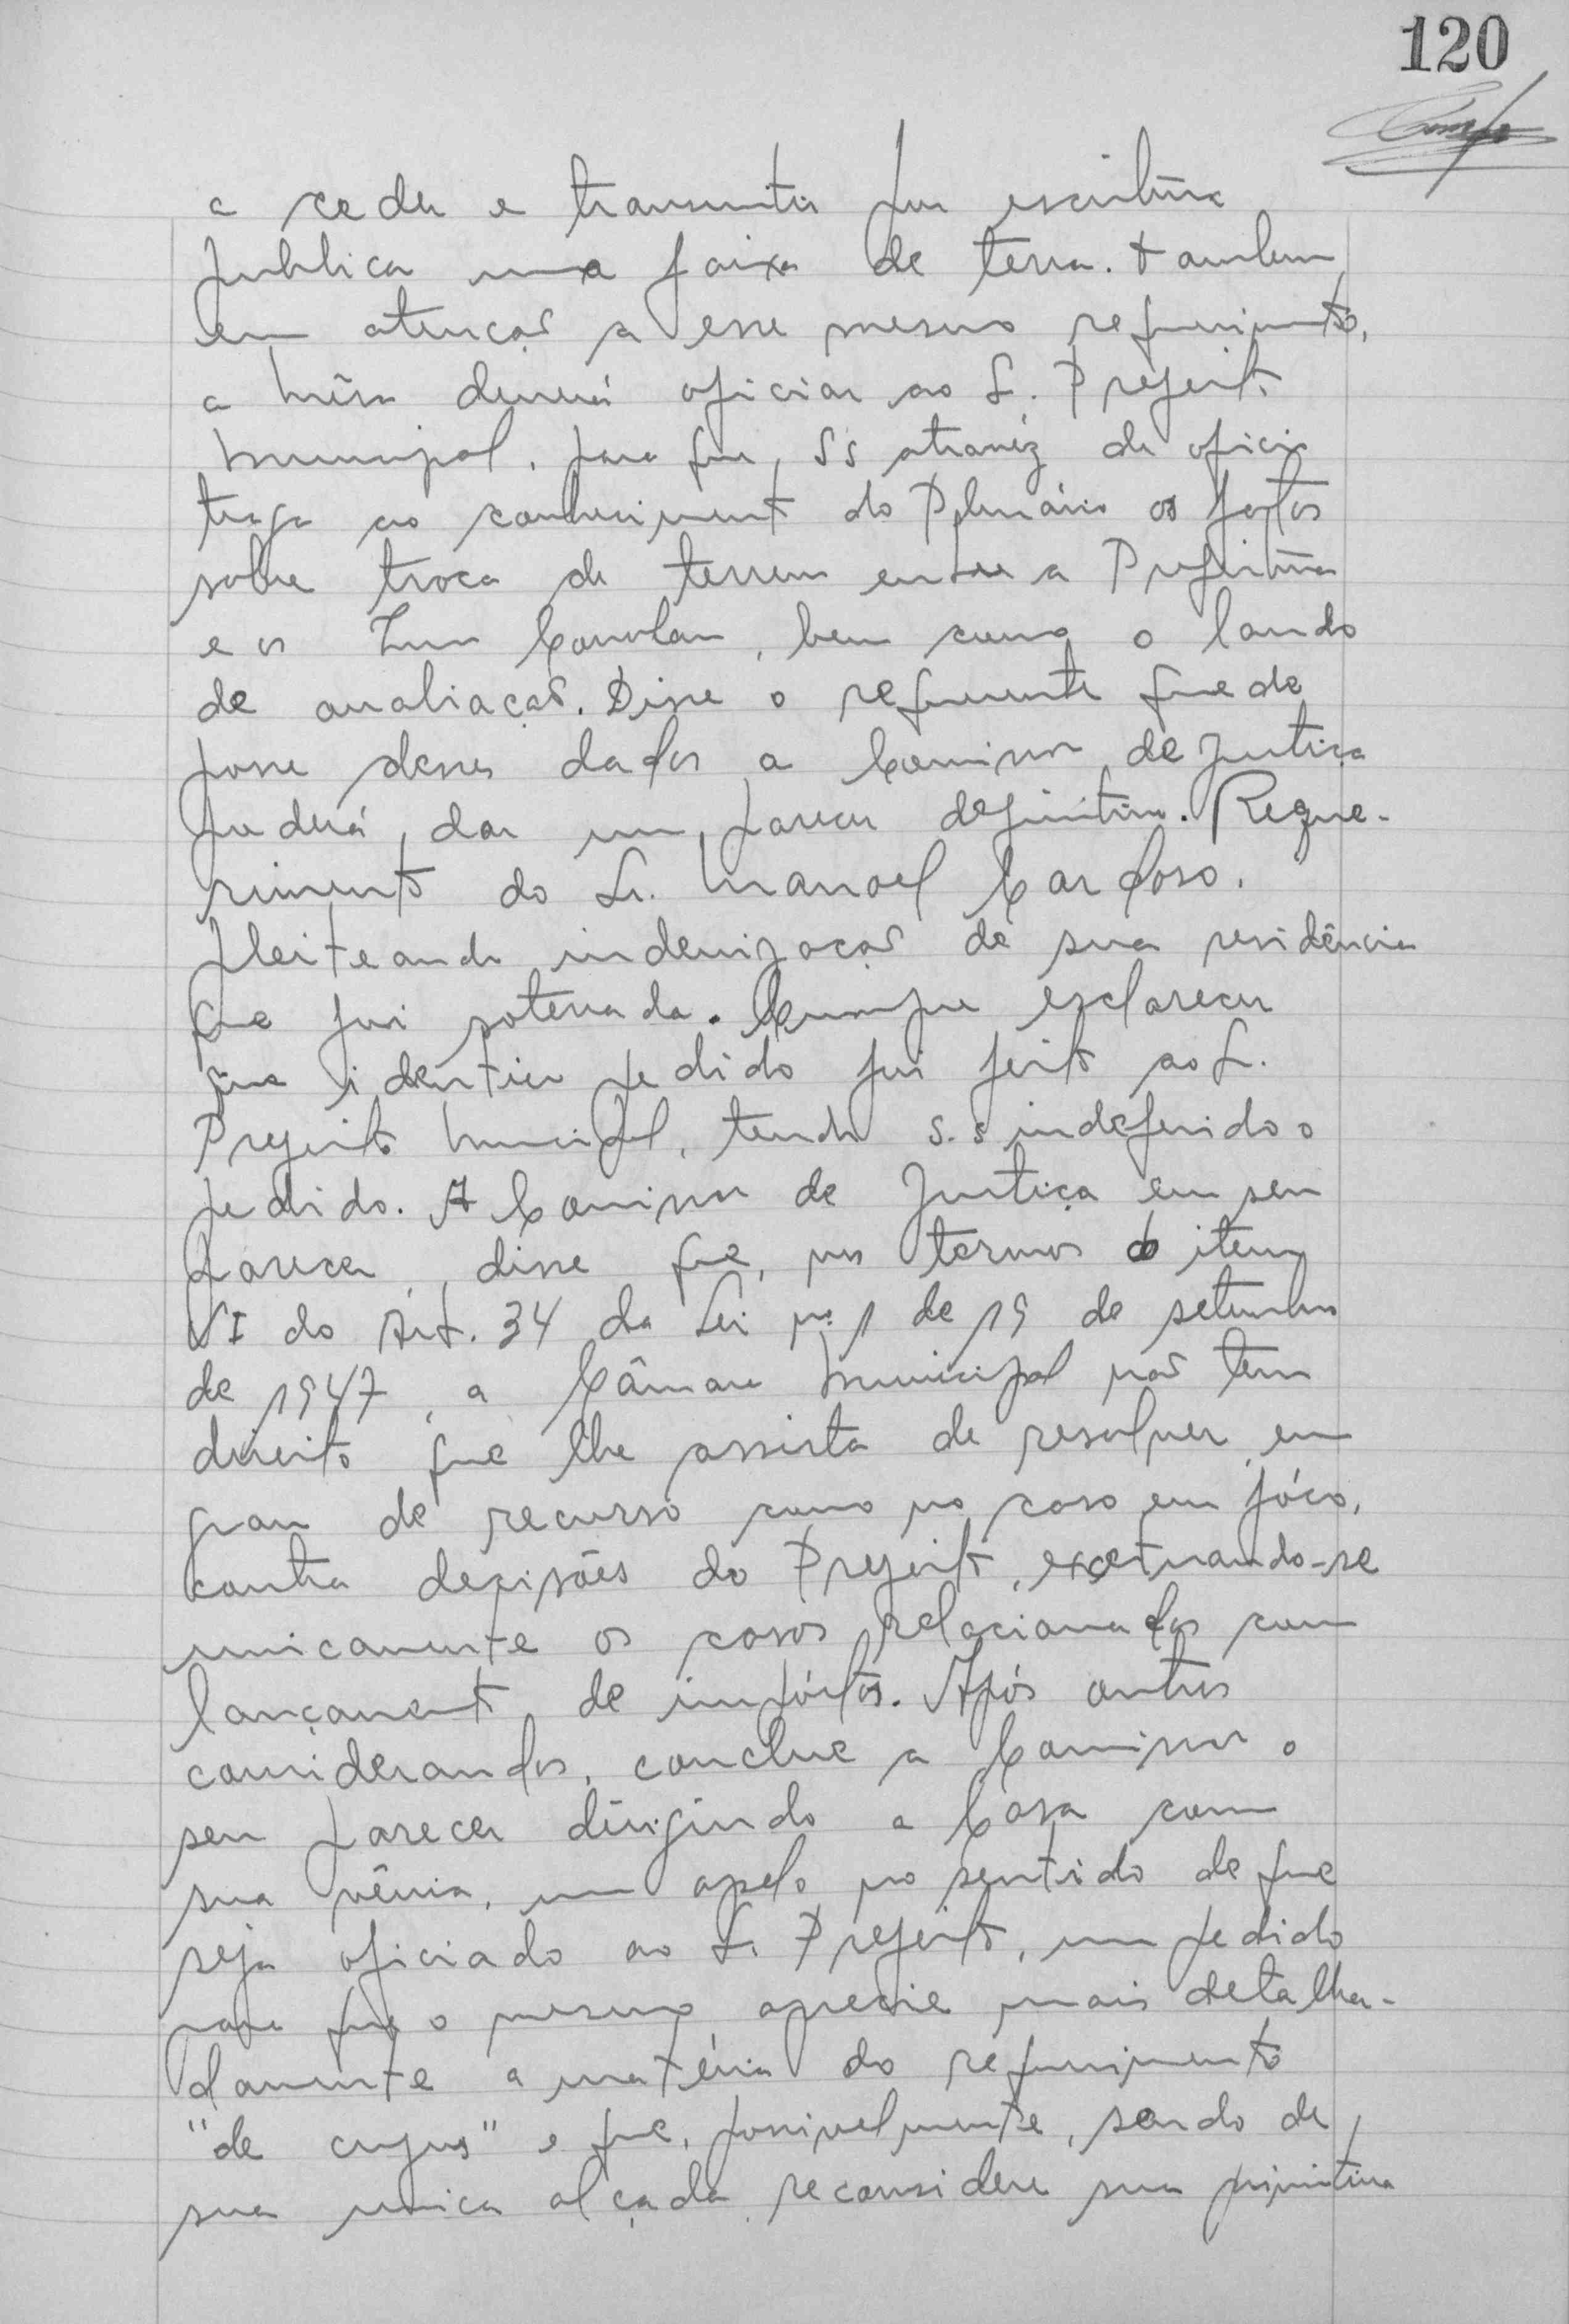 120
a ceder e transmitir por escritura
publica uma faixa de terra. Tambem
em atenção a esse mesmo requerimento,
a Mêsa deverá oficiar ao S. Prefeito
Municipal, para que, SS atravéz de oficio
traga ao conhecimento do Plenário os fatos
sobre troca de terreno entre a Prefeitura
e os, bem como o laudo
de avaliação. Disse o requerente que de
posse desses dados a Comissão de Justiça
poderá, dar um parecer definitivo. Reque-
rimento do Sr. Manoel Cardoso.
Pleiteando indenização de sua residência
que foi soterrada. Cumpre esclarecer
que identico pedido foi feito ao Sr.
Prefeito Municipal, tendo s.s indeferido o
pedido. A Comissão de Justiça em seu
parecer, disse que, nos termos do item
VI do Art. 34 da Lei nº 1 de 19 de setembro
de 1947, a Câmara Municipal não tem
direito que lhe assista de resolver, em
grau de recurso como no caso em fóco,
contra decisões do Prefeito, excetuando-se
unicamente os casos relacionados com
lançamento de impóstos. Após outros
considerandos, conclue a Comissão o
seu parecer dirigindo a Casa com
sua vênia, um apelo no sentido de que
seja oficiado ao Sr. Prefeito, um pedido
para que o mesmo aprecie mais detalha-
damente a matéria do requerimento
"de cujus" e que, possivelmente, sendo de
sua unica alçada reconsidere sua primitiva